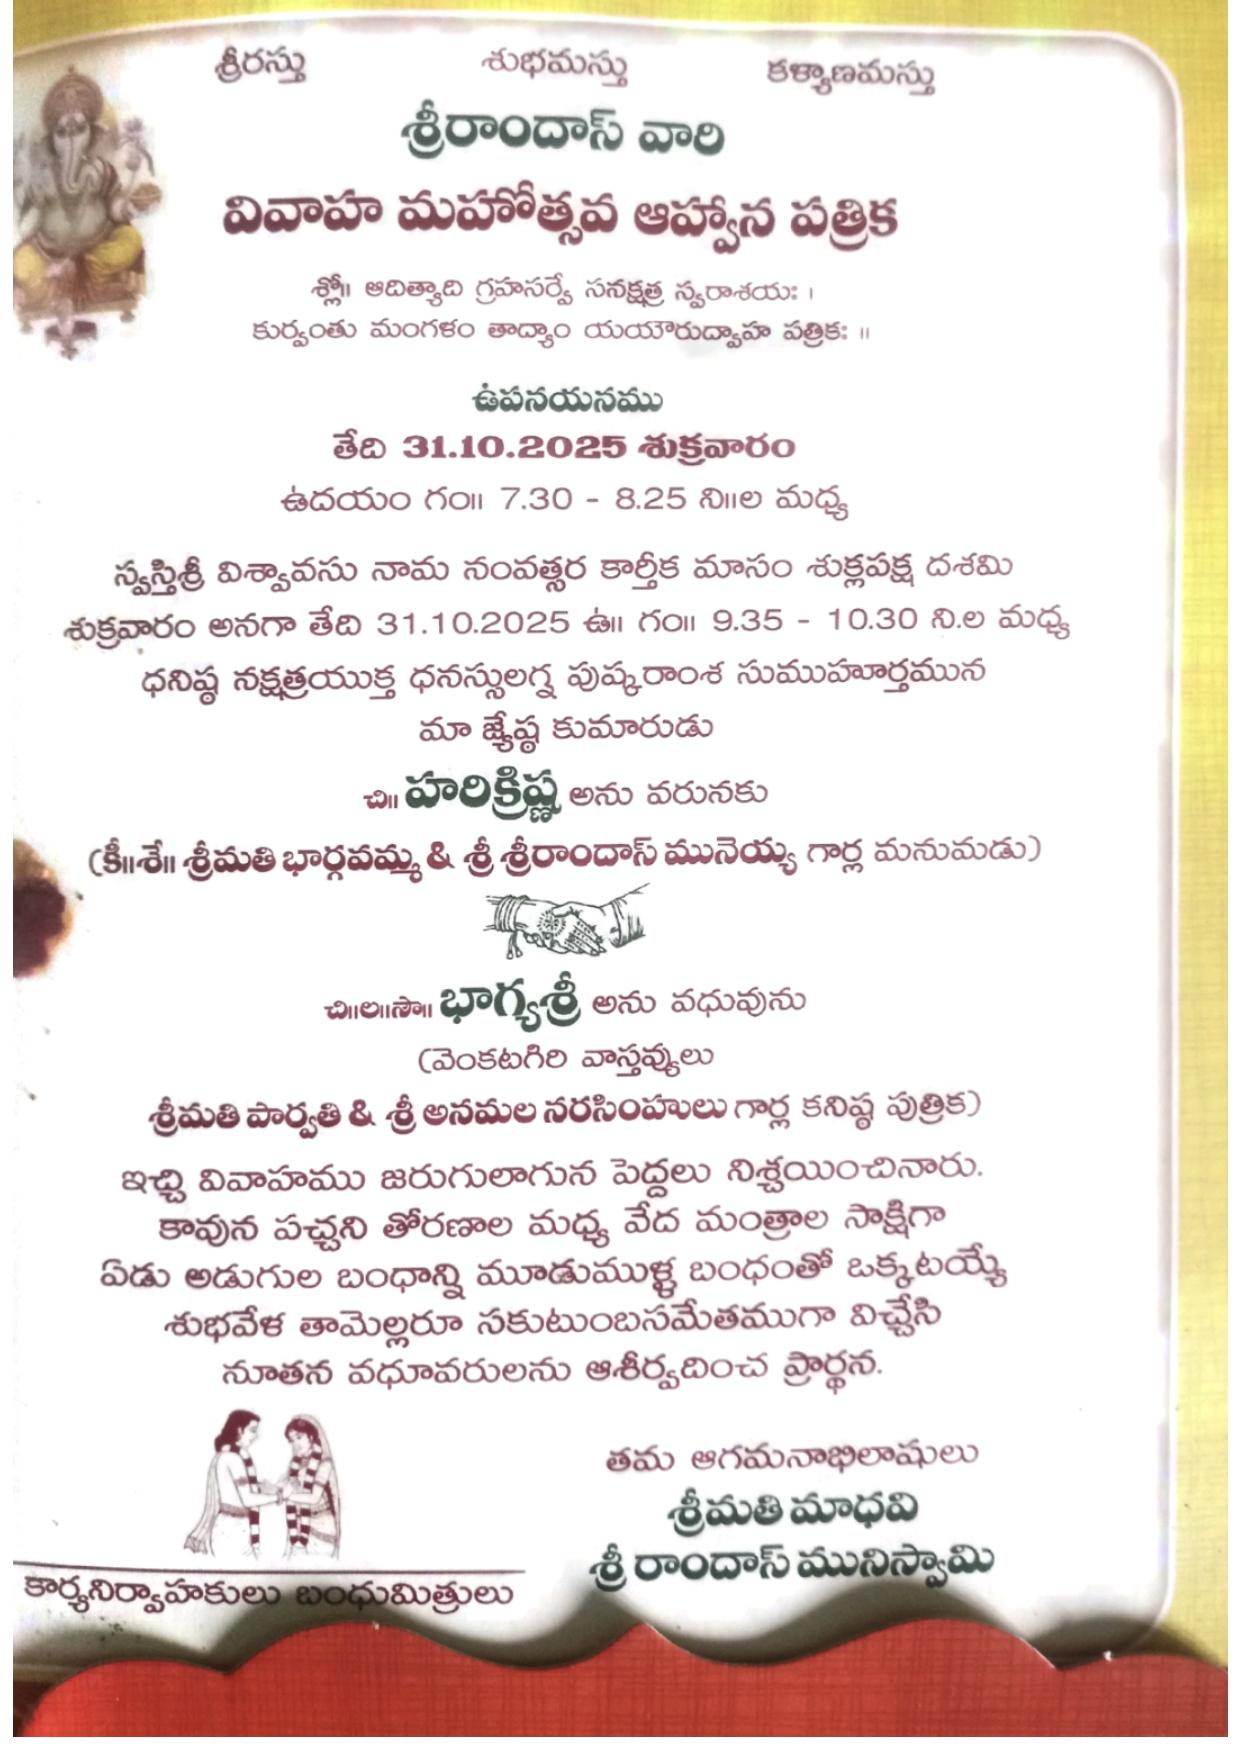 శ్రీరస్తు శుభమస్తు కళ్యాణమస్తు
శ్రీరాందాస్ వారి
వివాహ మహోత్సవ ఆహ్వాన పత్రిక
శ్లో॥ ఆదిత్యాది గ్రహసర్వే సనక్షత్ర స్వరాశయః ।
కుర్వంతు మంగళం తాద్యాం యయౌరుద్వాహ పత్రికః ॥
ఉపనయనము
తేది 31.10.2025 శుక్రవారం
ఉదయం గం॥ 7.30 - 8.25 ని॥ల మధ్య
స్వస్తిశ్రీ విశ్వావసు నామ నంవత్సర కార్తీక మాసం శుక్లపక్ష దశమి
శుక్రవారం అనగా తేది 31.10.2025 ఉ॥ గం॥ 9.35 - 10.30 ని.ల మధ్య
ధనిష్ఠ నక్షత్రయుక్త ధనస్సులగ్న పుష్కరాంశ సుముహూర్తమున
మా జ్యేష్ఠ కుమారుడు
చి॥ హరిక్రిష్ణ అను వరునకు
(కీ॥శే॥ శ్రీమతి భార్గవమ్మ & శ్రీ శ్రీరాందాస్ మునెయ్య గార్ల మనుమడు)
చి॥ల॥సౌ॥ భాగ్యశ్రీ అను వధువును
(వెంకటగిరి వాస్తవ్యులు
శ్రీమతి పార్వతి & శ్రీ అనమల నరసింహులు గార్ల కనిష్ఠ పుత్రిక)
ఇచ్చి వివాహము జరుగులాగున పెద్దలు నిశ్చయించినారు.
కావున పచ్చని తోరణాల మధ్య వేద మంత్రాల సాక్షిగా
ఏడు అడుగుల బంధాన్ని మూడుముళ్ళ బంధంతో ఒక్కటయ్యే
శుభవేళ తామెల్లరూ సకుటుంబసమేతముగా విచ్చేసి
నూతన వధూవరులను ఆశీర్వదించ ప్రార్థన.
తమ ఆగమనాభిలాషులు
శ్రీమతి మాధవి
శ్రీ రాందాస్ మునిస్వామి
కార్యనిర్వాహకులు బంధుమిత్రులు